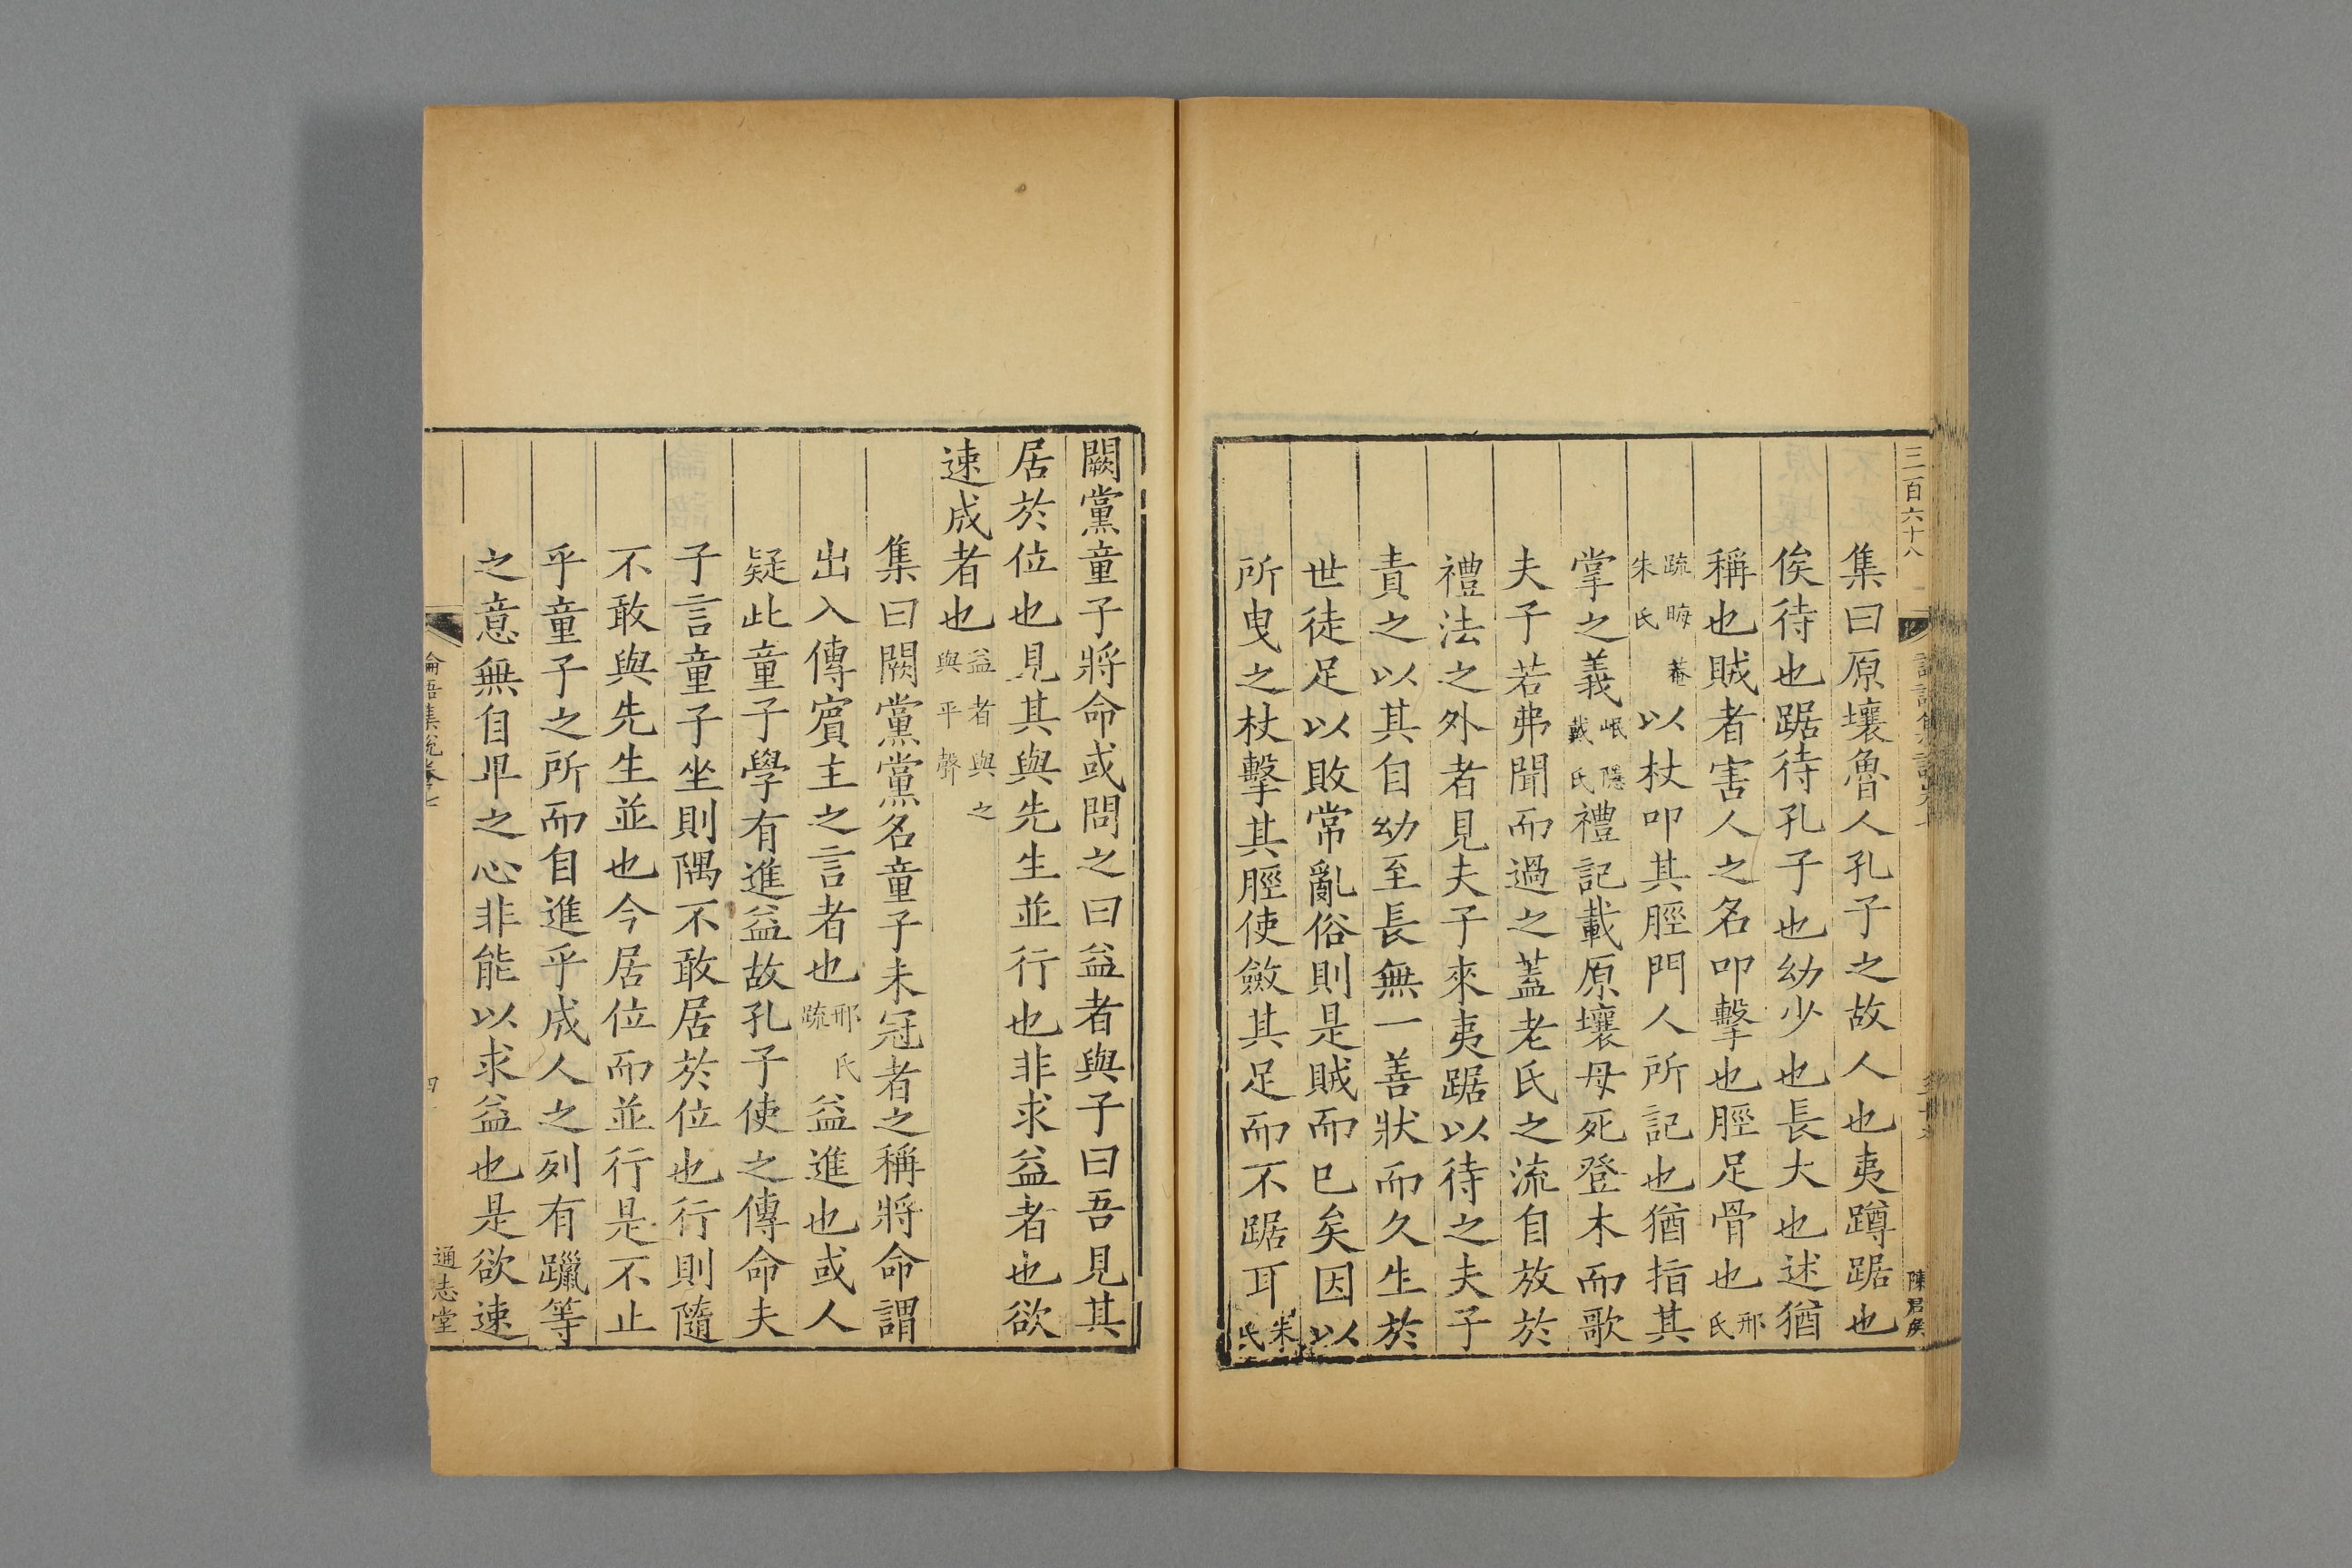 三百六十八
陳君侯
集曰原壤魯人孔子之故人也夷蹲踞也
俟待也踞待孔子也幼少也長大也述猶
稱也賊者害人之名叩擊也脛足骨也邢氏
疏晦菴朱氏以杖叩其脛門人所記也猶指其
掌之義岷隱戴氏禮記載原壤母死登木而歌
夫子若弗聞而過之蓋老氏之流自放於
禮法之外者見夫子來夷踞以待之夫子
責之以其自幼至長無一善狀而久生於
世徒足以敗常亂俗則是賊而已矣因以
所曳之杖擊其脛使斂其足而不踞耳朱氏
闕黨童子將命或問之曰益者與子曰吾見其
居於位也見其與先生並行也非求益者也欲
速成者也益者與之與平聲
集曰闕黨黨名童子未冠者之稱將命謂
出入傳賓主之言者也邢氏疏益進也或人
疑此童子學有進益故孔子使之傳命夫
子言童子坐則隅不敢居於位也行則隨
不敢與先生並也今居位而並行是不止
乎童子之所而自進乎成人之列有躐等
之意無自卑之心非能以求益也是欲速
論語集說卷七
通志堂